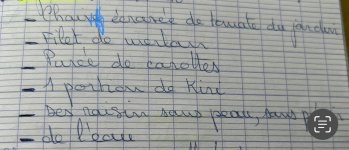 - Chair écrasée de tomate du jardin
- Filet de merlan
- Purée de carottes
- 1 portion de Kiri
- Des raisin sans peau, sans
- de l'eau